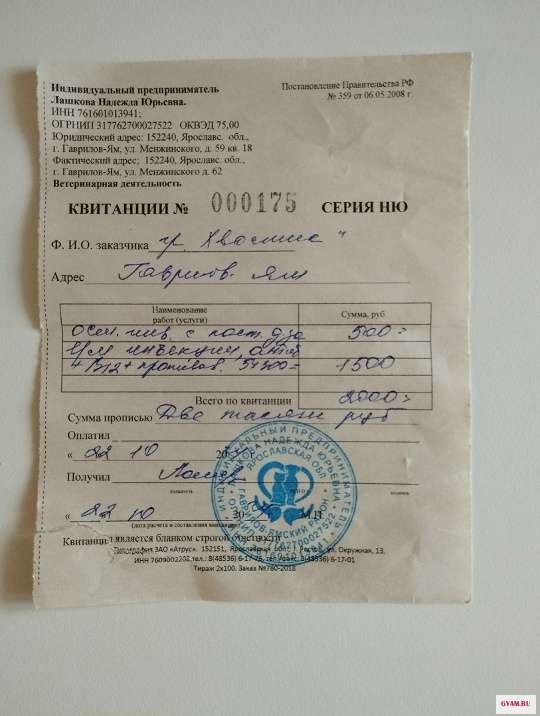 Индивидуальный предприниматель
Лашкова Надежда Юрьевна.
ИНН 761601013941;
ОГРНИП 317762700027522 ОКВЭД 75,00
Юридический адрес: 152240, Ярославс. обл.,
г. Гаврилов-Ям, ул. Менжинского, д. 59 кв. 18
Фактический адрес; 152240, Ярославс. обл.,
г. Гаврилов-Ям, ул. Менжинского д. 62
Ветеринарная деятельность
Постановление Правительства РФ
№ 359 от 06.05.2008 г.
КВИТАНЦИИ № 000175 СЕРИЯ НЮ
Ф. И.О. заказчика гр. Хвостика"
Адрес Гаврилов-Ям
Наименование
работ (услуги)
Сумма, руб.
осм. с 500=
инъекции 1500
+ B12 + 5х300=
Всего по квитанции 2000=
Сумма прописью Две тысячи руб
Оплатил
« 22 10 20
Получил
подпись
« 22 10 20 М.П
(дата расчета и составления квитанции)
Квитанция является бланком строгой отчетности
Типография ЗАО «Атрус». 152151, Ярославская обл., г. Ростов, ул. Окружная, 13,
ИНН 7609002202,тел.:8(48536) 6-17-76, тел./факс. 8(48536) 6-17-01
Тираж 2х100. Заказ №780-2018
ИНДИВИДУАЛЬНЫЙ ПРЕДПРИНИМАТЕЛЬ
ЛАШКОВА НАДЕЖДА ЮРЬЕВНА
ЯРОСЛАВСКАЯ ОБЛ
ГАВРИЛОВ-ЯМСКИЙ РАЙОН
GYAM.RU